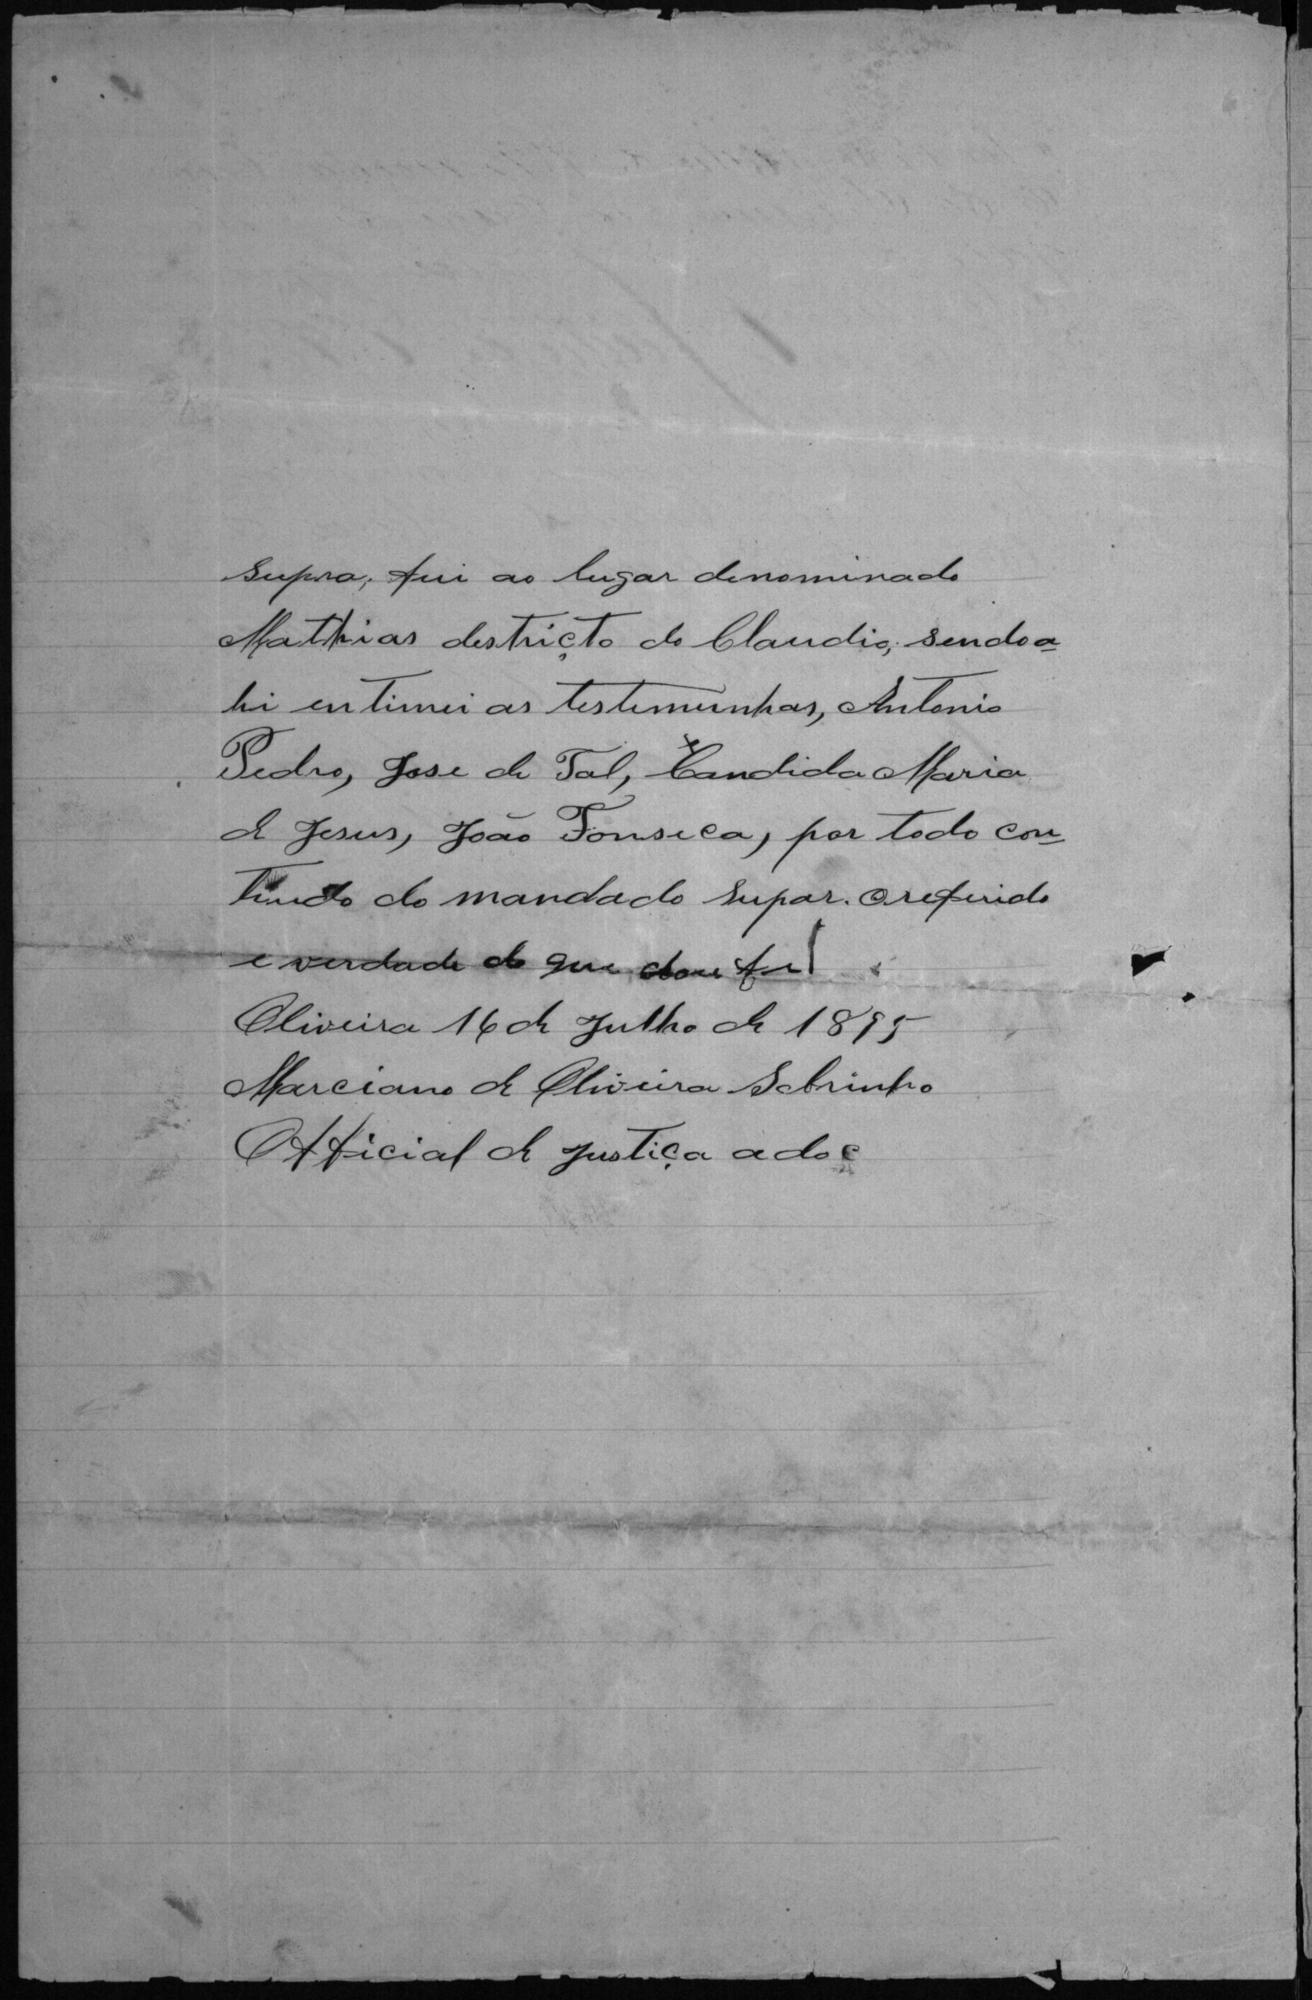 supra, fui ao lugar denominado
Matthias destricto do Claudio, sendo a-
hi entimei as testemunhas, Antonio
Pedro, Jose de Tal, Candida Maria
de Jesus, João Fonseca, por todo con-
tiudo do mandado supar. O referido
e verdade do que dou fe
Oliveira 16 de Julho de 1895
Marciano de Oliveira Sobrinho
Official de Justiça adoc